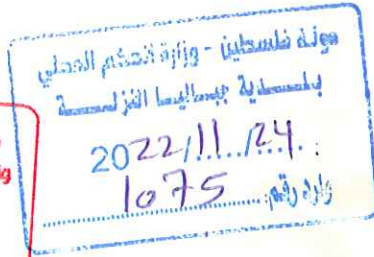 دولة فلسطين - وزارة الحكم المحلي
بلدية جباليا النزلة
2022/11/24
وارد رقم: 1075